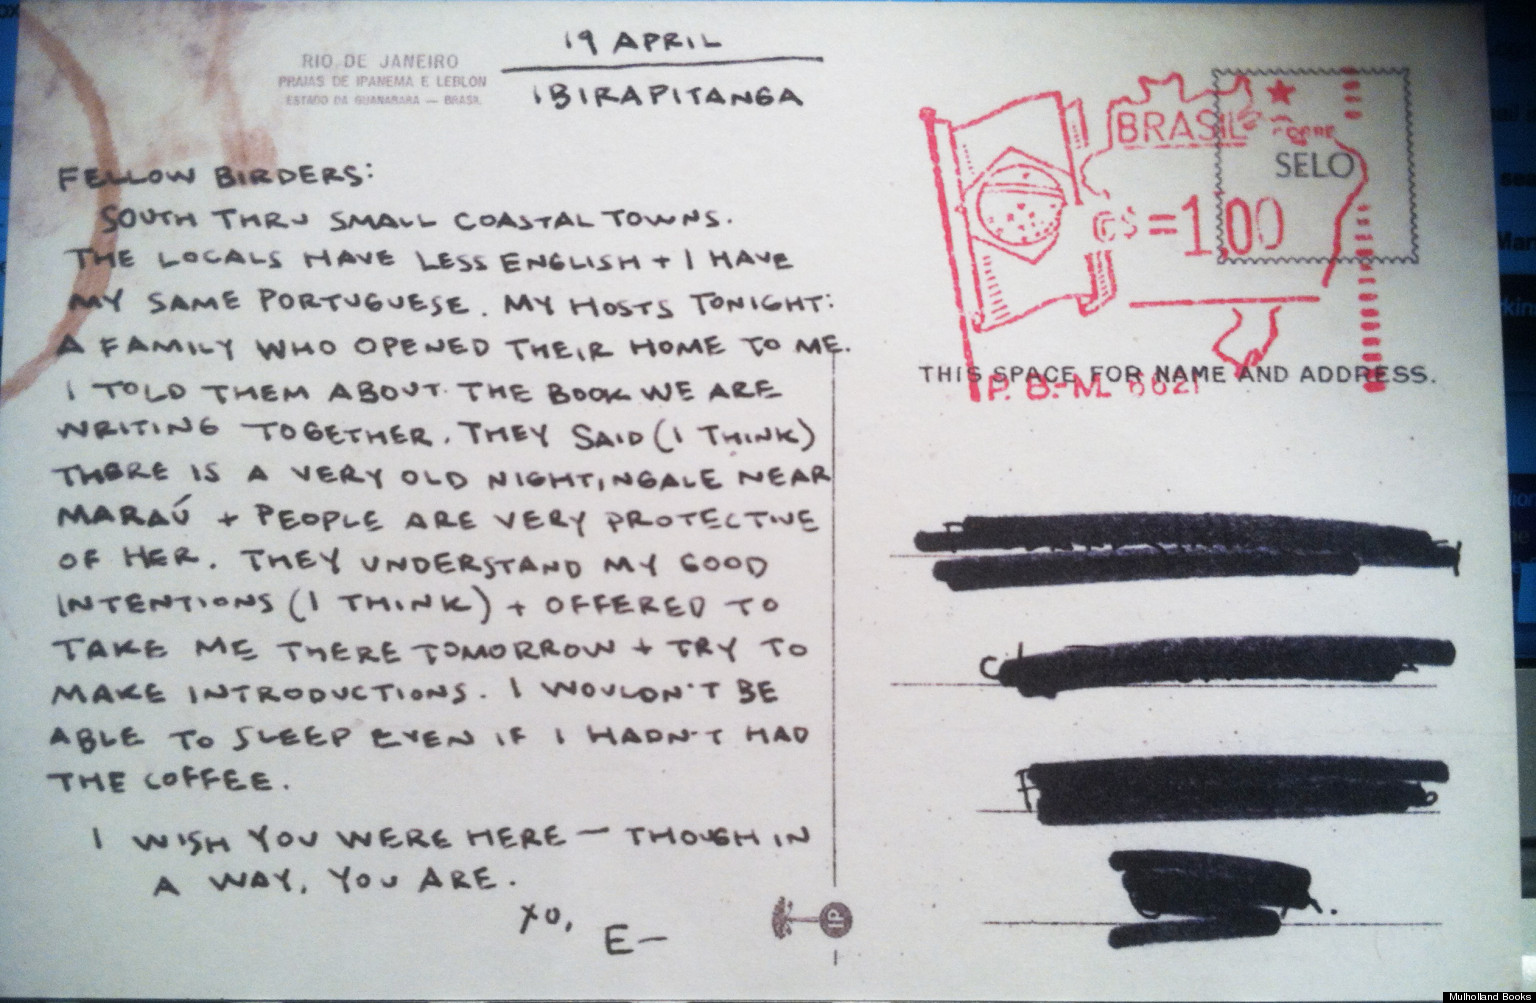 RIO DE JANEIRO
PRAIAS DE IPANEMA E LEBLON
ESTADO DA GUANABARA — BRASIL
19 APRIL
IBIRAPITANGA
FELLOW BIRDERS:
SOUTH THRU SMALL COASTAL TOWNS.
THE LOCALS HAVE LESS ENGLISH + I HAVE
MY SAME PORTUGUESE. MY HOSTS TONIGHT:
A FAMILY WHO OPENED THEIR HOME TO ME.
I TOLD THEM ABOUT THE BOOK WE ARE
WRITING TOGETHER. THEY SAID (I THINK)
THERE IS A VERY OLD NIGHTINGALE NEAR
MARAÚ + PEOPLE ARE VERY PROTECTIVE
OF HER. THEY UNDERSTAND MY GOOD
INTENTIONS (I THINK) + OFFERED TO
TAKE ME THERE TOMORROW + TRY TO
MAKE INTRODUCTIONS. I WOULDN'T BE
ABLE TO SLEEP EVEN IF I HADN'T HAD
THE COFFEE.
I WISH YOU WERE HERE — THOUGH IN
A WAY, YOU ARE.
XO,
E—
BRASIL
SELO
=1,00
THIS SPACE FOR NAME AND ADDRESS.
P. B.-M. 6621
IP
Mulholland Books